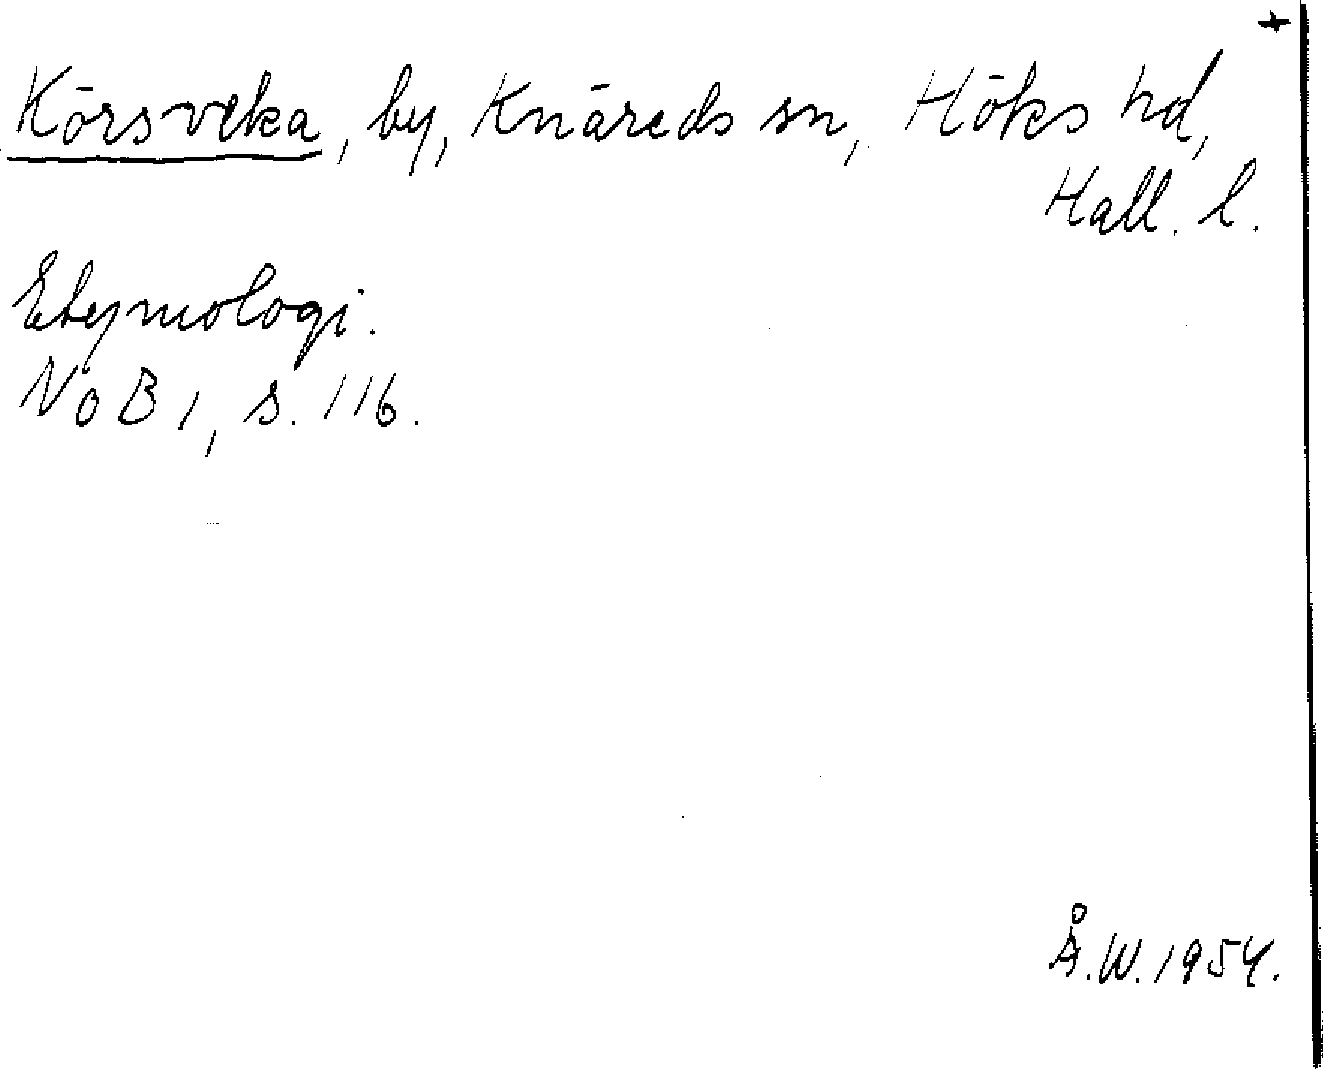 +
Körsveka, by, Knäreds sn, Höks hd,
Hall. l.
Etymologi.
NoB 1, s. 116.
Å.W. 1954.